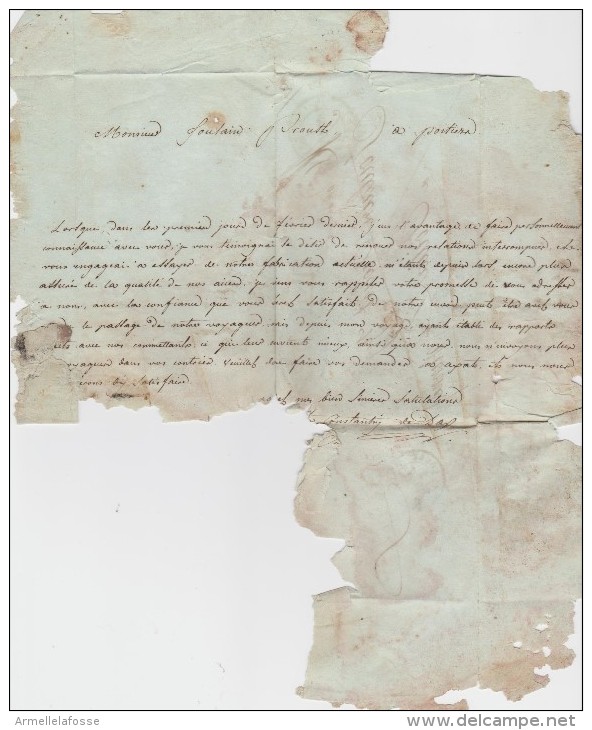 Monsieur Poulain Proust à poitiers
Lorsque, dans les premiers jours de février dernier, j'eus l'avantage de faire personnellement
connaissance avec vous, je vous témoignai le désir de renouer nos relations interrompues, et
vous engageai à essayer de notre fabrication actuelle, m'étant depuis lors encore plus
de la qualité de nos aciers, je viens vous rappeler votre promesse de vous adresser
à nous, avec la confiance que vous serez satisfait de notre envoi, peut être avez vous
le passage de notre voyageur, mais depuis mon voyage, ayant établi des rapports
avec nos commettants, ce qui leur convient mieux, ainsi qu'à nous, nous n'envoyons plus
voyageur dans vos contrées. Veuillez donc faire vos demandes
satisfaire
mes bien sincères salutations
Constantin de
Armellelafosse
www.delcampe.net